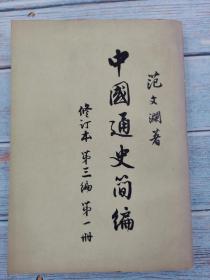 范文澜著
中國通史簡編
修订本 第三編 第一册